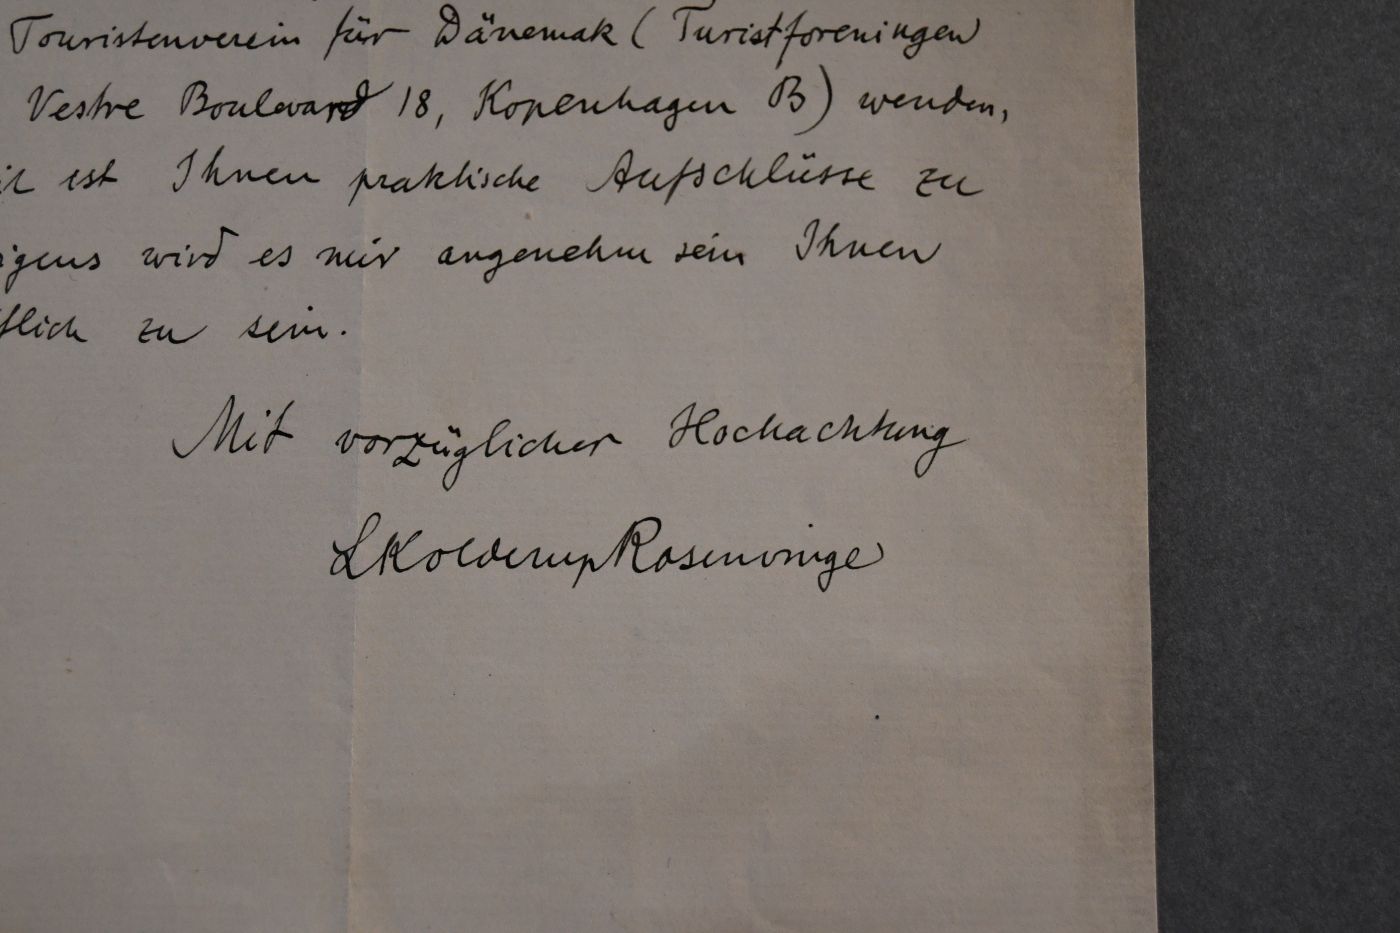 Touristenverein für Dänemak (Turistforeningen
Vestre Boulevard 18, Kopenhagen B) wenden,
ist Ihnen praktische Aufschlüsse zu
wird es mir angenehm sein Ihnen
flich zu sein.
Mit vorzüglicher Hochachtung
LKolderup Rosenvinge